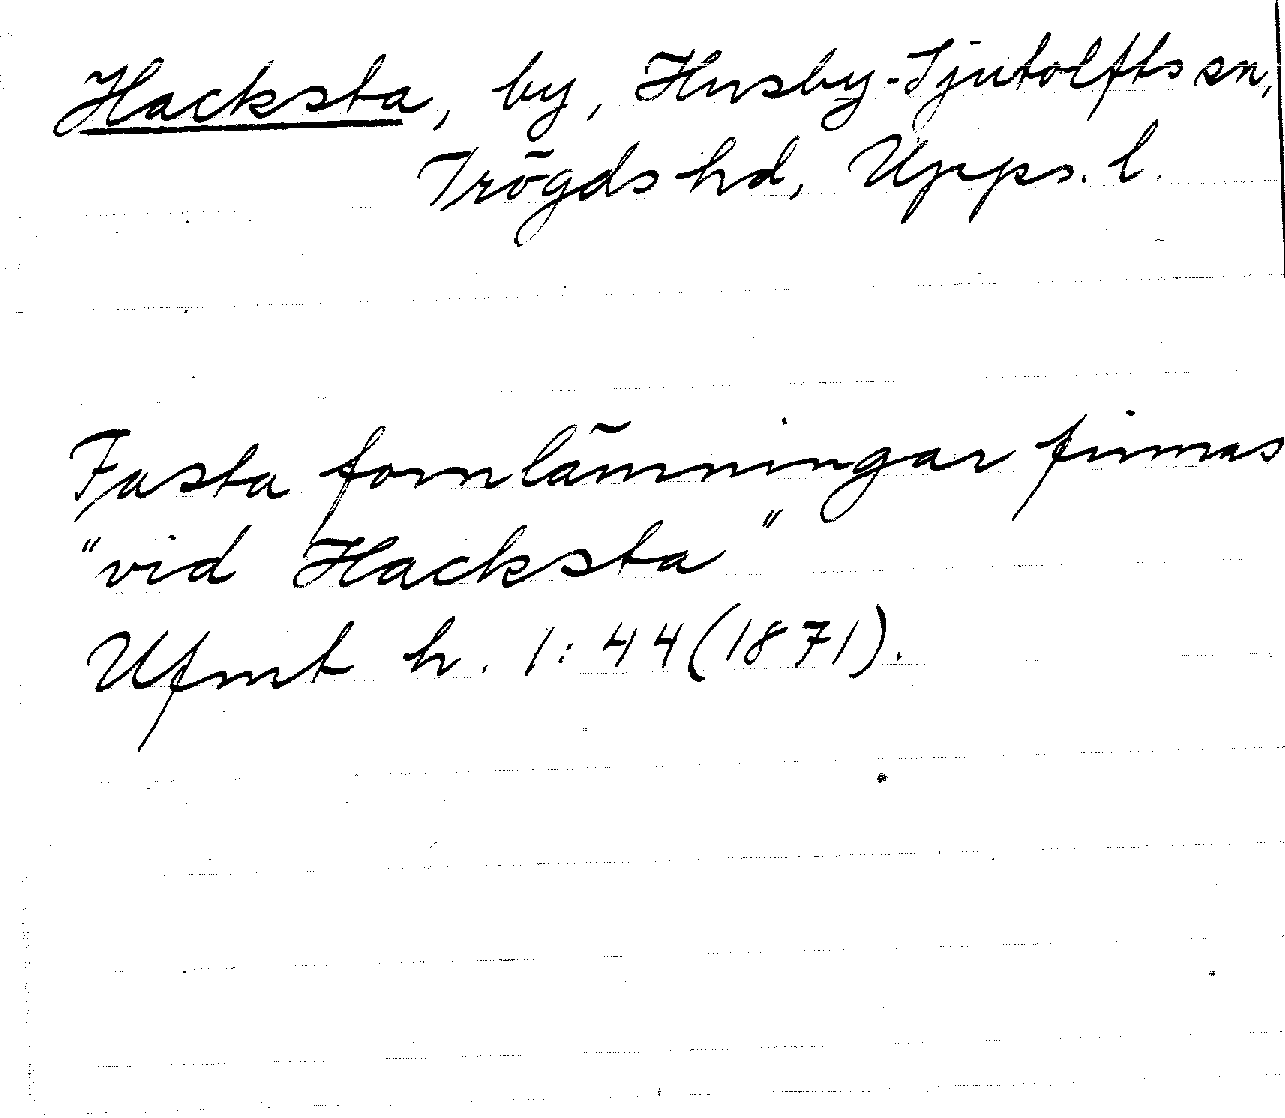 Hacksta, by, Husby-Sjutolfts sn,
Trögds hd, Upps. l.
Fasta fornlämningar finnas
"vid Hacksta"
Ufmt h. 1:44 (1871).